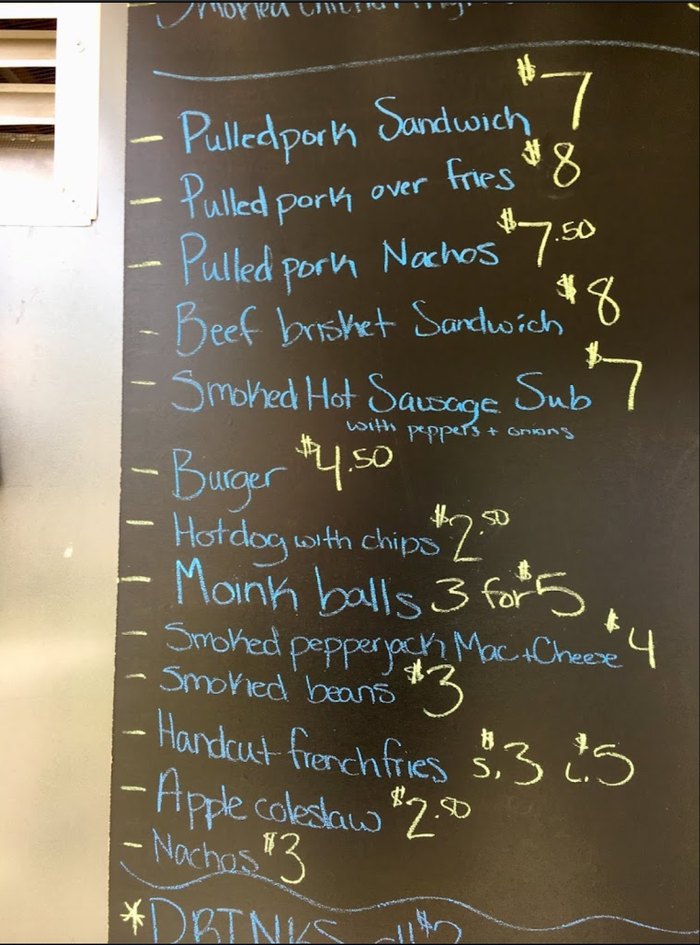 Smoked
- Pulled pork Sandwich $7
- Pulled pork over fries $8
- Pulled pork Nachos $7.50
- Beef brisket Sandwich $8
- Smoked Hot Sausage Sub $7
with peppers + onions
- Burger $4.50
- Hotdog with chips $2.50
- Moink balls 3 for $5
- Smoked pepperjack Mac + Cheese $4
- Smoked beans $3
- Handcut french fries S. $3 L. $5
- Apple coleslaw $2.50
- Nachos $3
* DRINKS all $2